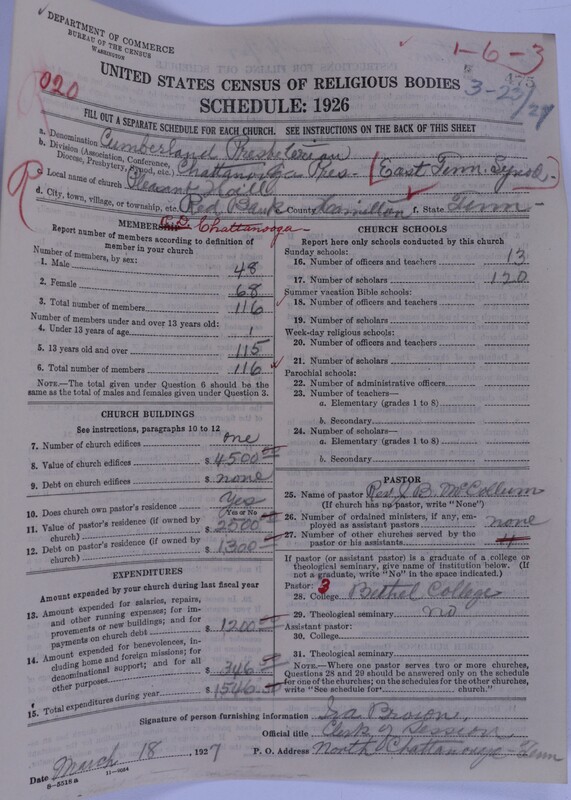 DEPARTMENT OF COMMERCE
BUREAU OF THE CENSUS
WASHINGTON
1-6-3
475
3-23/27
020
UNITED STATES CENSUS OF RELIGIOUS BODIES
SCHEDULE: 1926
FILL OUT A SEPARATE SCHEDULE FOR EACH CHURCH. SEE INSTRUCTIONS ON THE BACK OF THIS SHEET
a. Denomination Cumberland Presbyterian
b. Division (Association, Conference, Diocese, Presbytery, Synod, etc.) Chattanooga Pres- (East Tenn. Synod-)
c. Local name of church Pleasant Hill
d. City, town, village, or township, etc. Red Bank e. County Hamilton f. State Tenn-
R.D. Chattanooga
MEMBERSHIP
Report number of members according to definition of member in your church
Number of members, by sex:
1. Male 48
2. Female 68
3. Total number of members 116
Number of members under and over 13 years old:
4. Under 13 years of age 1
5. 13 years old and over 115
6. Total number of members 116
NOTE.—The total given under Question 6 should be the same as the total of males and females given under Question 3.
CHURCH BUILDINGS
See instructions, paragraphs 10 to 12
7. Number of church edifices one
8. Value of church edifices $ 4500 00
9. Debt on church edifices $ none
10. Does church own pastor's residence? Yes
Yes or No
11. Value of pastor's residence (if owned by church) $ 2500 00
12. Debt on pastor's residence (if owned by church) $ 1300 00
EXPENDITURES
Amount expended by your church during last fiscal year
13. Amount expended for salaries, repairs, and other running expenses; for improvements or new buildings; and for payments on church debt $ 1200 00
14. Amount expended for benevolences, including home and foreign missions; for denominational support; and for all other purposes $ 346 00
15. Total expenditures during year $ 1546 00
CHURCH SCHOOLS
Report here only schools conducted by this church
Sunday schools:
16. Number of officers and teachers 13
17. Number of scholars 120
Summer vacation Bible schools:
18. Number of officers and teachers
19. Number of scholars
Week-day religious schools:
20. Number of officers and teachers
21. Number of scholars
Parochial schools:
22. Number of administrative officers
23. Number of teachers—
a. Elementary (grades 1 to 8)
b. Secondary
24. Number of scholars—
a. Elementary (grades 1 to 8)
b. Secondary
PASTOR
25. Name of pastor Rev. J. B. McCollum
(If church has no pastor, write "None")
26. Number of ordained ministers, if any, employed as assistant pastors none
27. Number of other churches served by the pastor or his assistants
If pastor (or assistant pastor) is a graduate of a college or theological seminary, give name of institution below. (If not a graduate, write "No" in the space indicated.)
Pastor: 3
28. College Bethel College
29. Theological seminary no
Assistant pastor:
30. College
31. Theological seminary
NOTE.—Where one pastor serves two or more churches, Questions 28 and 29 should be answered only on the schedule for one of the churches; on the schedules for the other churches, write "See schedule for church."
Signature of person furnishing information Ira Browne,
Official title Clerk of Session
P. O. Address North Chattanooga - Tenn
Date March 18, 1927
8-5518a 11-9054